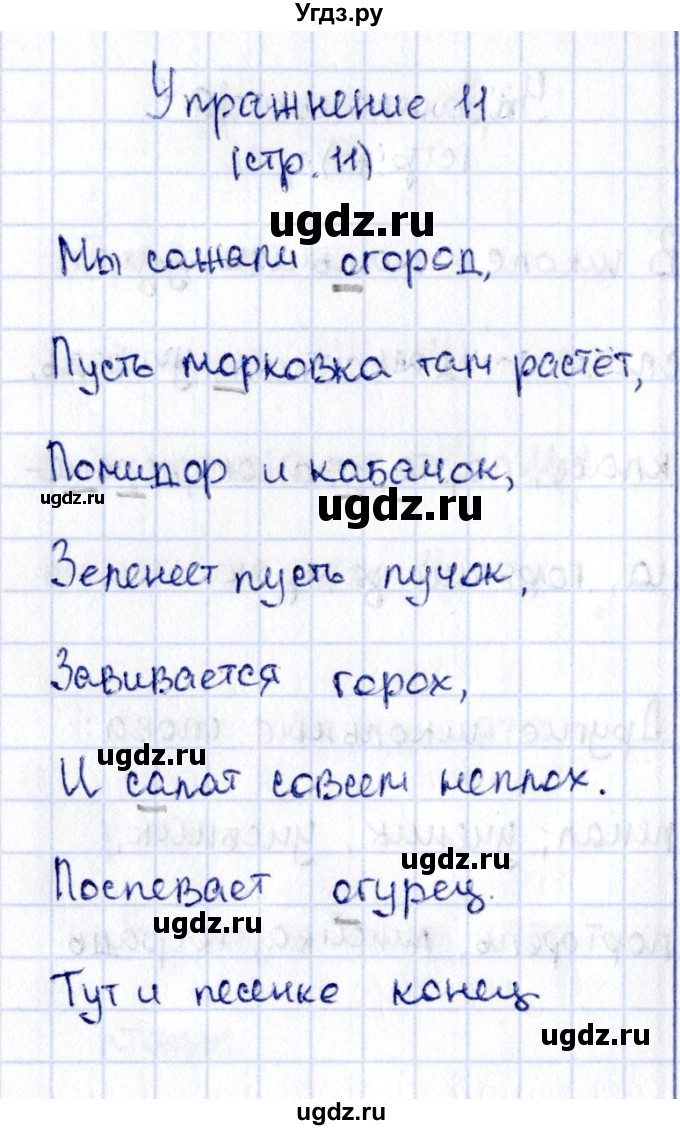 Угдз.ру
Упражнение 11
(стр. 11)
ugdz.ru
Мы сажали огород,
Пусть морковка там растёт,
Помидор и кабачок,
ugdz.ru
ugdz.ru
Зеленеет пусть лучок,
Завивается горох,
ugdz.ru
И салат совсем неплох.
ugdz.ru
Поспевает огурец.
ugdz.ru
Тут и песенке конец
ugdz.ru
ugdz.ru